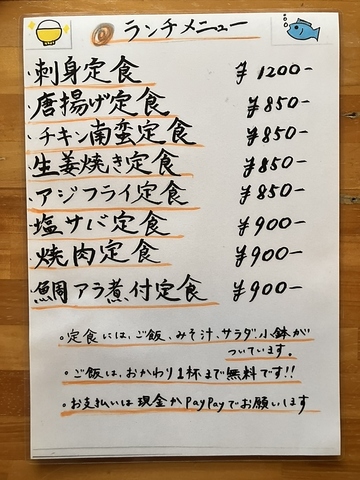 ランチメニュー
・刺身定食 ¥1200-
・唐揚げ定食 ¥850-
・チキン南蛮定食 ¥850-
・生姜焼き定食 ¥850-
・アジフライ定食 ¥850-
・塩サバ定食 ¥900-
・焼肉定食 ¥900-
・鯛アラ煮付定食 ¥900-
。定食には、ご飯、みそ汁、サラダ、小鉢が
ついています。
。ご飯は、おかわり1杯まで無料です!!
。お支払いは現金かPayPayでお願いします